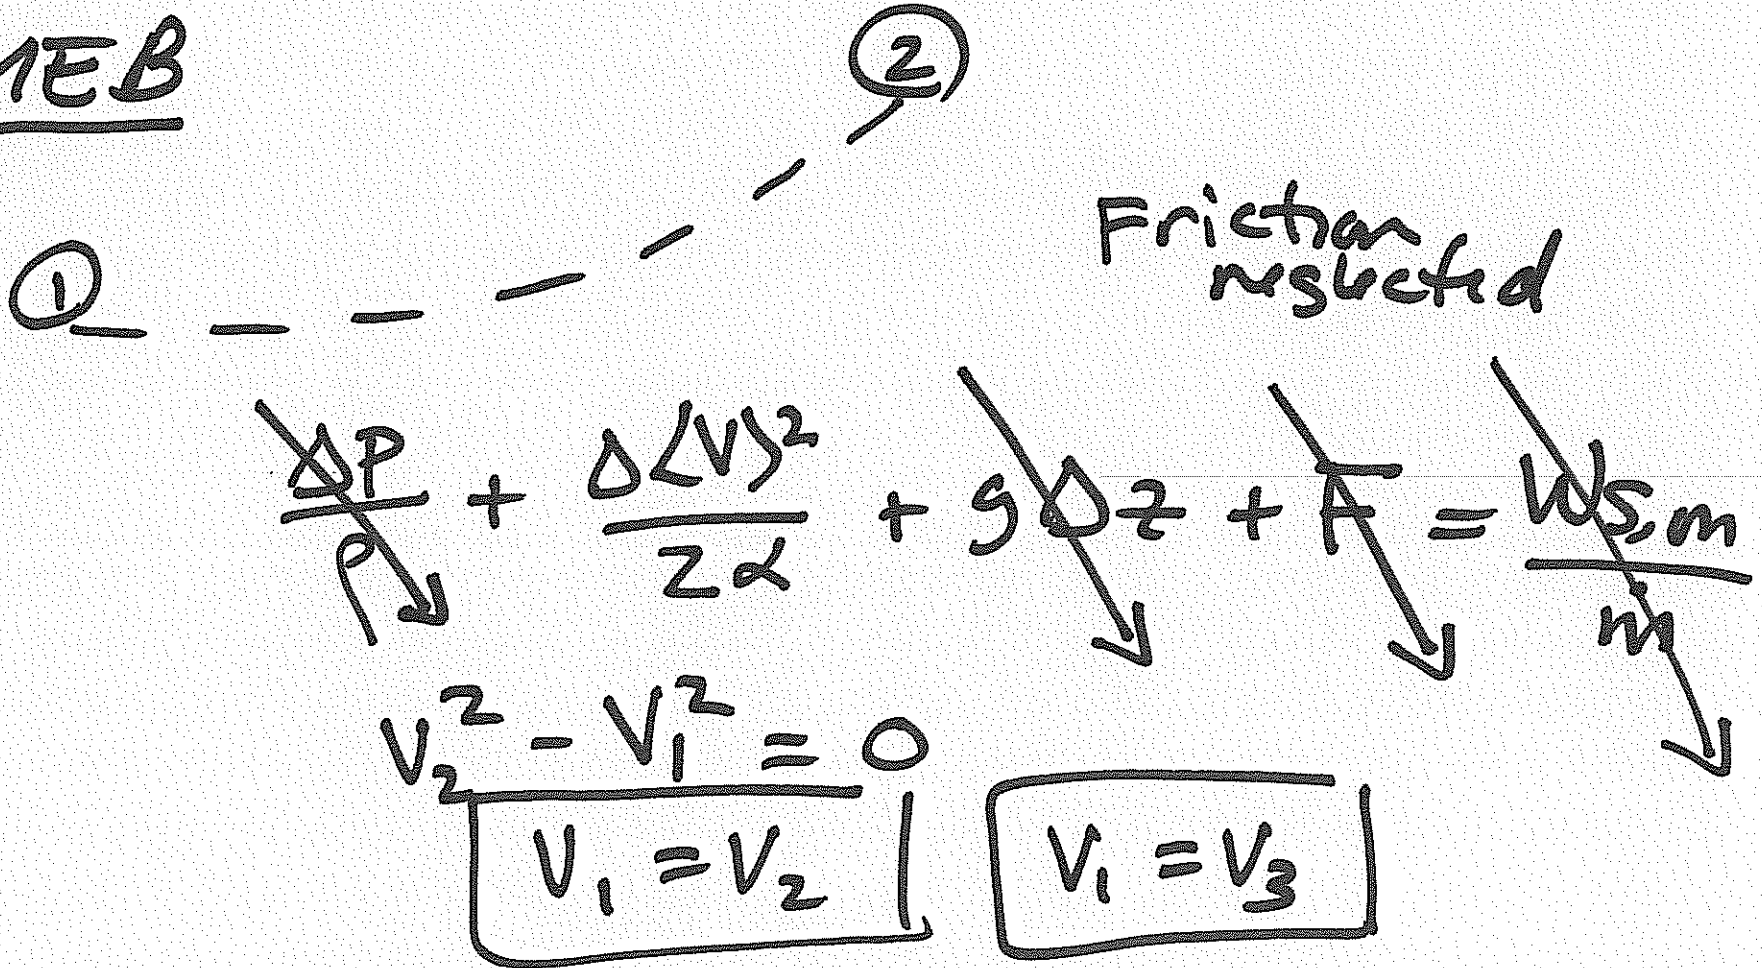 MEB
②
①
Friction
neglected
ΔP/ρ + Δ⟨V⟩²/2α + gΔz + F = Ws,m/ṁ
V₂² - V₁² = 0
V₁ = V₂
V₁ = V₃